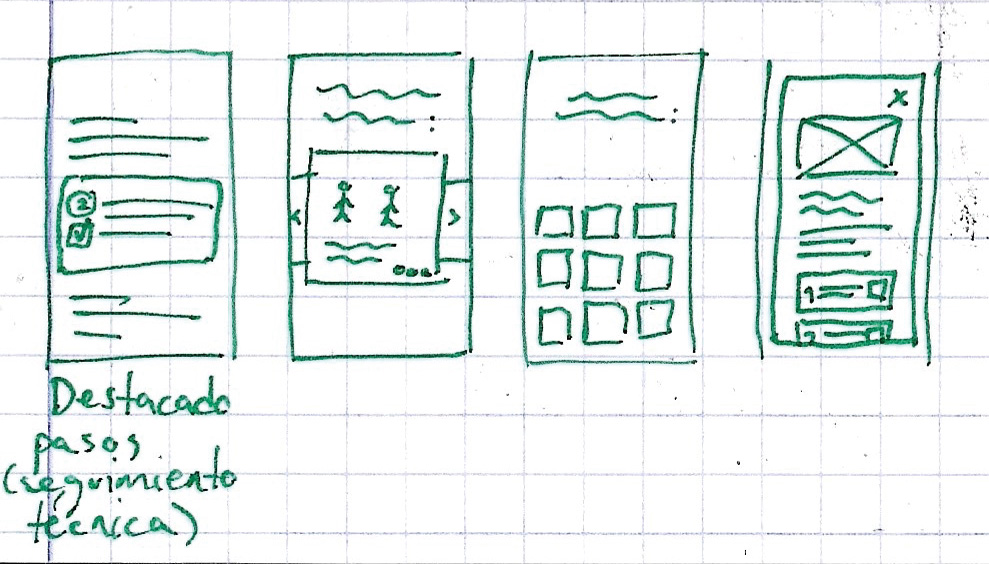 2
x
<
>
1
2
Destacado
pasos
(seguimiento
técnica)